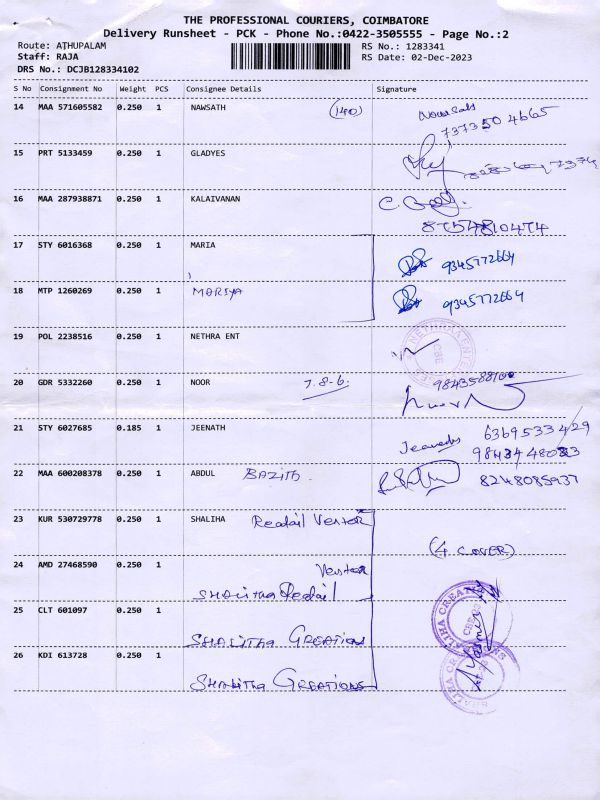 THE PROFESSIONAL COURIERS, COIMBATORE
Delivery Runsheet - PCK - Phone No.:0422-3505555 - Page No.:2
Route: ATHUPALAM
RS No.: 1283341
Staff: RAJA
RS Date: 02-Dec-2023
DRS No.: DCJB128334102
S No Consignment No Weight PCS Consignee Details Signature
14 MAA 571605582 0.250 1 NAWSATH (140) Nowsath
737350 4665
15 PRT 5133459 0.250 1 GLADYES
16 MAA 287938871 0.250 1 KALAIVANAN
8754810474
17 STY 6016368 0.250 1 MARIA 9345772664
18 MTP 1260269 0.250 1 MARIYA 9345772664
19 POL 2238516 0.250 1 NETHRA ENT CBE
20 GDR 5332260 0.250 1 NOOR 7.8-6.
21 STY 6027685 0.185 1 JEENATH 6369533429
22 MAA 600208378 0.250 1 ABDUL BAZITH. 8248085937
23 KUR 530729778 0.250 1 SHALIHA Readail Vestor
(4 COVER)
24 AMD 27468590 0.250 1 Vestor
SHALIHA Redail
25 CLT 601097 0.250 1
SHALIHA CREATION
26 KDI 613728 0.250 1
SHALIHA CREATIONS